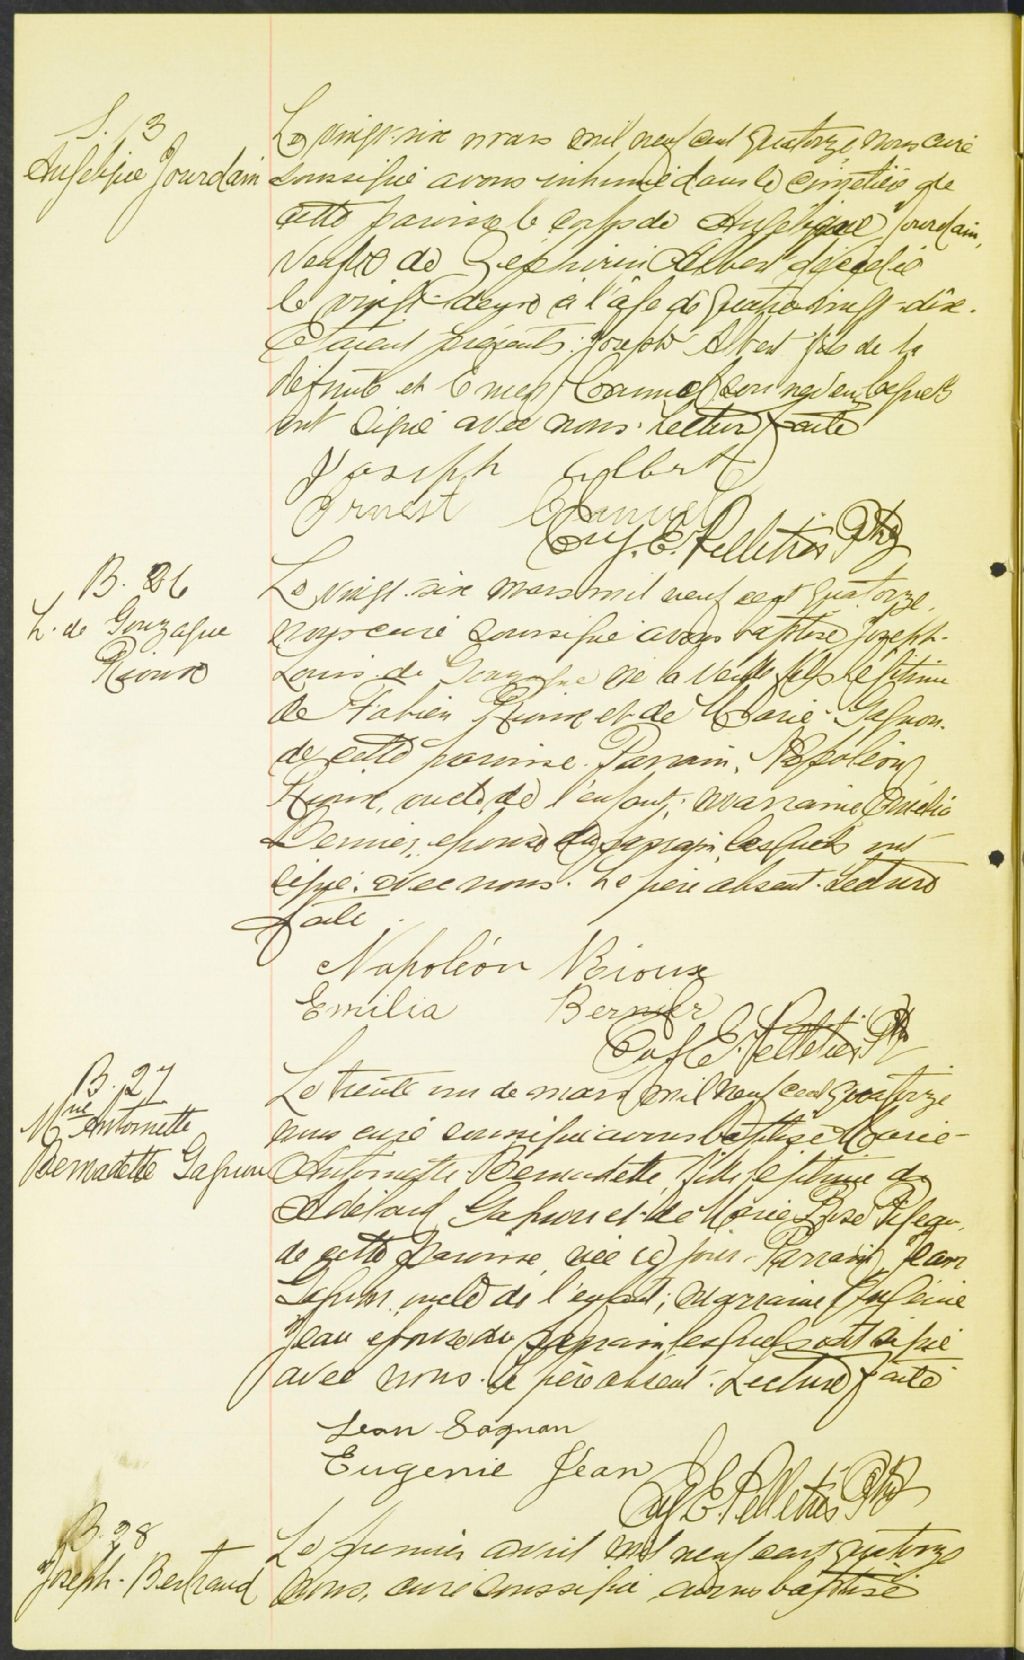 S. 13
Angélique Jourdain
Le vingt-six mars mil neuf cent quatorze nous curé
soussigné avons inhumé dans le cimetière de
cette paroisse le corps de Angélique Jourdain,
veuve de Zéphirin Albert décédée
le vingt-deux à l'âge de quatrevingt-dix.
Etaient présents: Joseph Albert fils de la
défunte et Ernest son neveu lesquels
ont signé avec nous. Lecture faite
Joseph Albert
Ernest
Eug. E. Pelletier Ptre
B. 26
L. de Gonzague
Rioux
Le vingt-six mars mil neuf cent quatorze,
nous curé soussigné avons baptisé Joseph-
Louis de Gonzague né la veille fils légitime
de Fabien Rioux et de Marie Gagnon.
de cette paroisse. Parrain, Napoléon
Rioux, oncle de l'enfant; marraine Emélia
Bernier, epouse du parrain lesquels ont
signé avec nous. Le père absent. Lecture
faite.
Napoléon Rioux
Emilia Bernier
Eug. E. Pelletier Ptr
B. 27
Mrie Antoinette
Bernadette Gagnon
Le trente un de mars mil neuf cent quatorze
nous curé soussigné avons baptisé Marie-
Antoinette Bernadette, fille légitime de
Adélard Gagnon et de Marie Rose
de cette paroisse née ce jour. Parrain, Jean
Gagnon, oncle de l'enfant; marraine Eugénie
Jean epouse du parrain lesquels ont signé
avec nous. Le père absent. Lecture faite
Jean Gagnon
Eugenie Jean
Eug. E. Pelletier Ptre
B. 28
Joseph-Bertrand
Le premier avril mil neuf cent quatorze
nous, curé soussigné avons baptisé